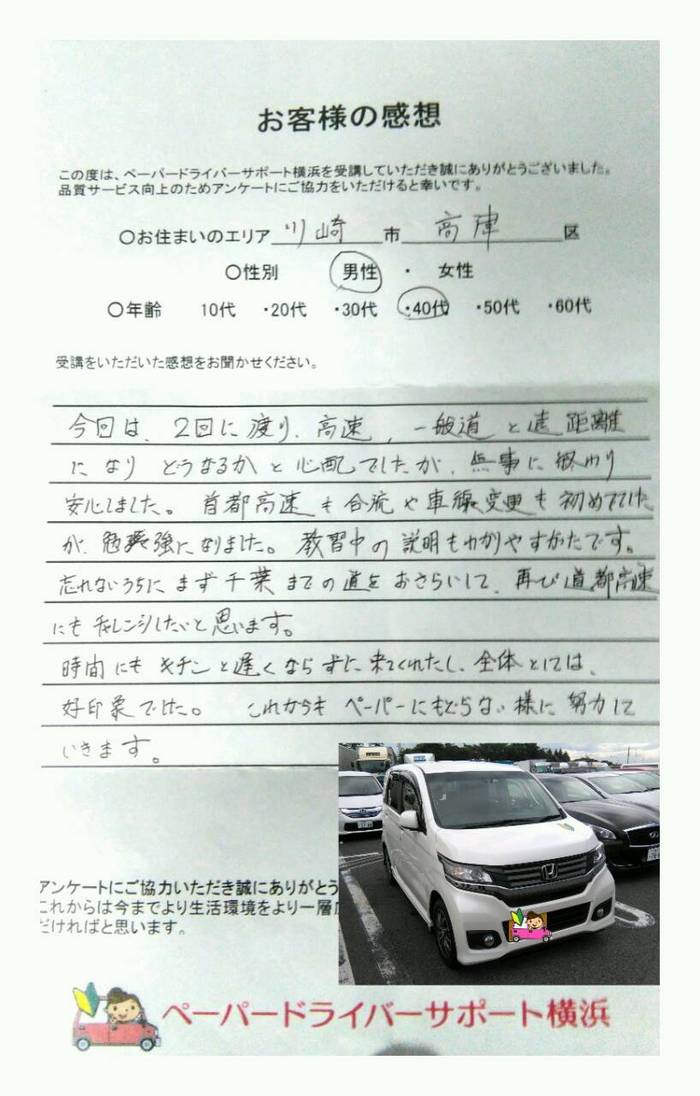 お客様の感想
この度は、ペーパードライバーサポート横浜を受講していただき誠にありがとうございました。
品質サービス向上のためアンケートにご協力をいただけると幸いです。
○お住まいのエリア 川崎 市 高津 区
○性別 男性 ・ 女性
○年齢 10代 ・20代 ・30代 ・40代 ・50代 ・60代
受講をいただいた感想をお聞かせください。
今回は、2回に渡り、高速、一般道と遠距離
になりどうなるかと心配でしたが、無事に終わり
安心しました。首都高速も合流や車線変更も初めてでした
が、勉強になりました。教習中の説明もわかりやすかたです。
忘れないうちにまず千葉までの道をおさらいして、再び道都高速
にもチャレンジしたいと思います。
時間にもキチンと遅くならずに来てくれたし、全体としては、
好印象でした。これからもペーパーにもどらない様に努力して
いきます。
アンケートにご協力いただき誠にありがとう
これからは今までより生活環境をより一層
だければと思います。
ペーパードライバーサポート横浜